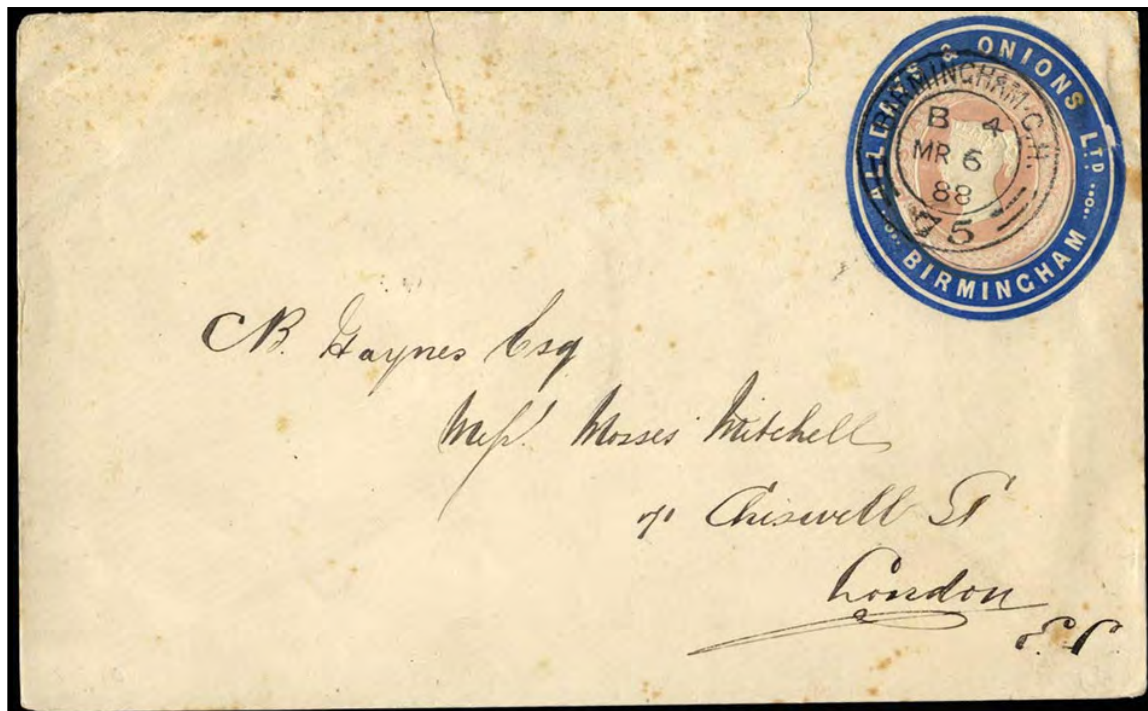 ALLDAYS & ONIONS LTD
BIRMINGHAM
BIRMINGHAM.C.H.
B 4
MR 6
88
75
CB. Haynes Esq
Messrs. Mosses Mitchell
Chiswell St
London
E.C